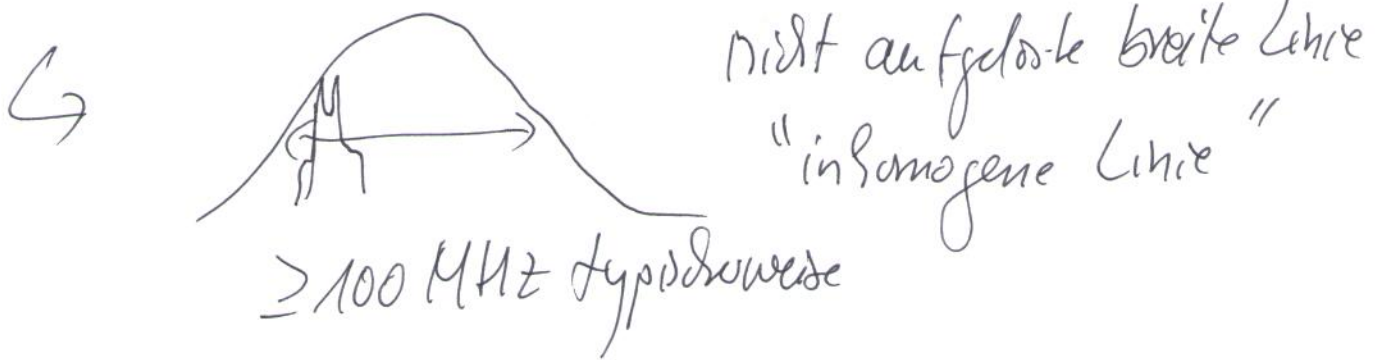 nicht aufgelöste breite Linie
"inhomogene Linie"
≥100 MHz typischerweise